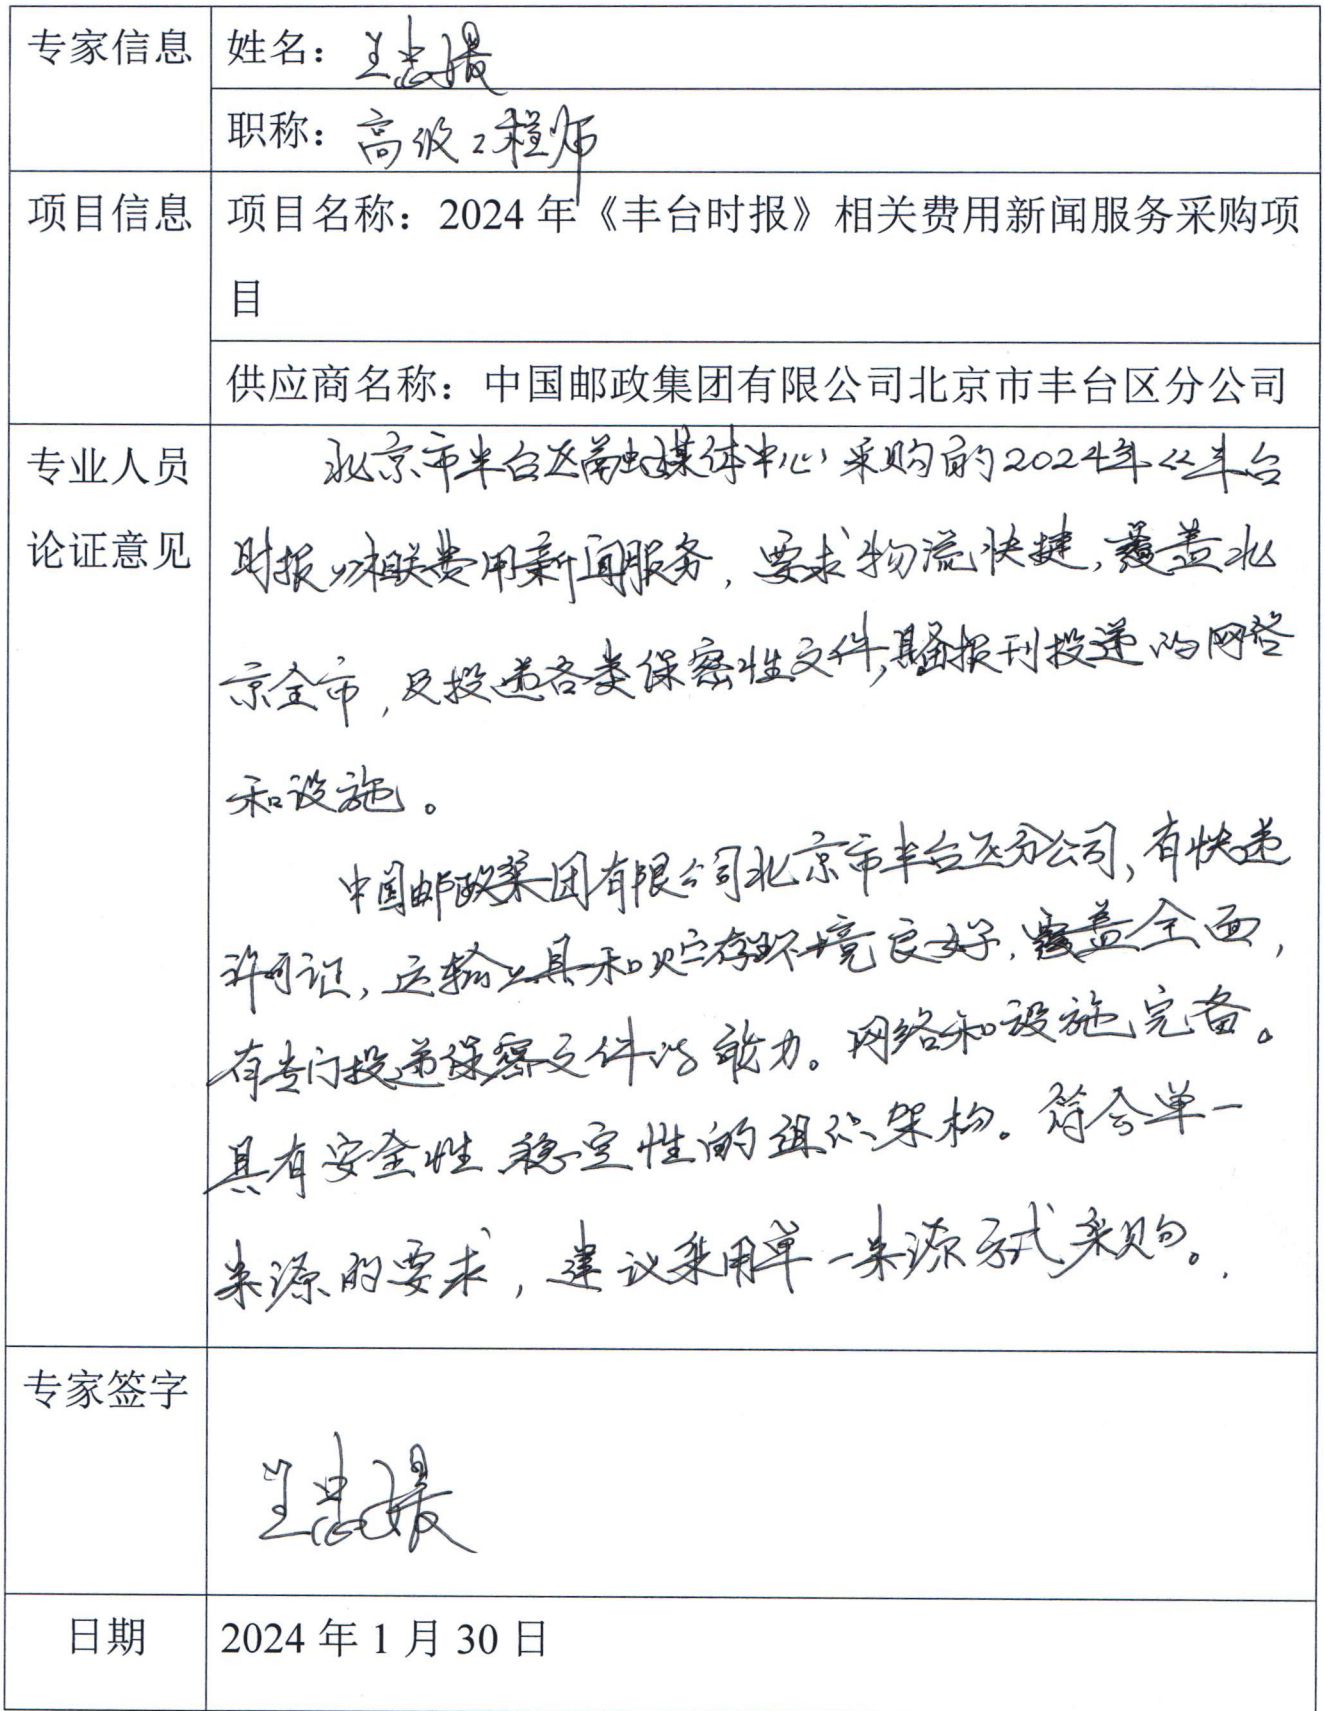 专家信息 姓名：王志
职称：高级工程师
项目信息 项目名称：2024年《丰台时报》相关费用新闻服务采购项
目
供应商名称：中国邮政集团有限公司北京市丰台区分公司
专业人员 北京市丰台区融媒体中心采购的2024年《丰台
论证意见 时报》相关费用新闻服务，要求物流快捷，覆盖北
京全市，及投递各类保密性文件，具备报刊投递的网络
和设施。
中国邮政集团有限公司北京市丰台区分公司，有快递
许可证，运输工具和贮存环境良好，覆盖全面，
有专门投递保密文件的能力。网络和设施完备。
具有安全性、稳定性的组织架构。符合单一
来源的要求，建议采用单一来源方式采购。
专家签字
王志
日期 2024年1月30日